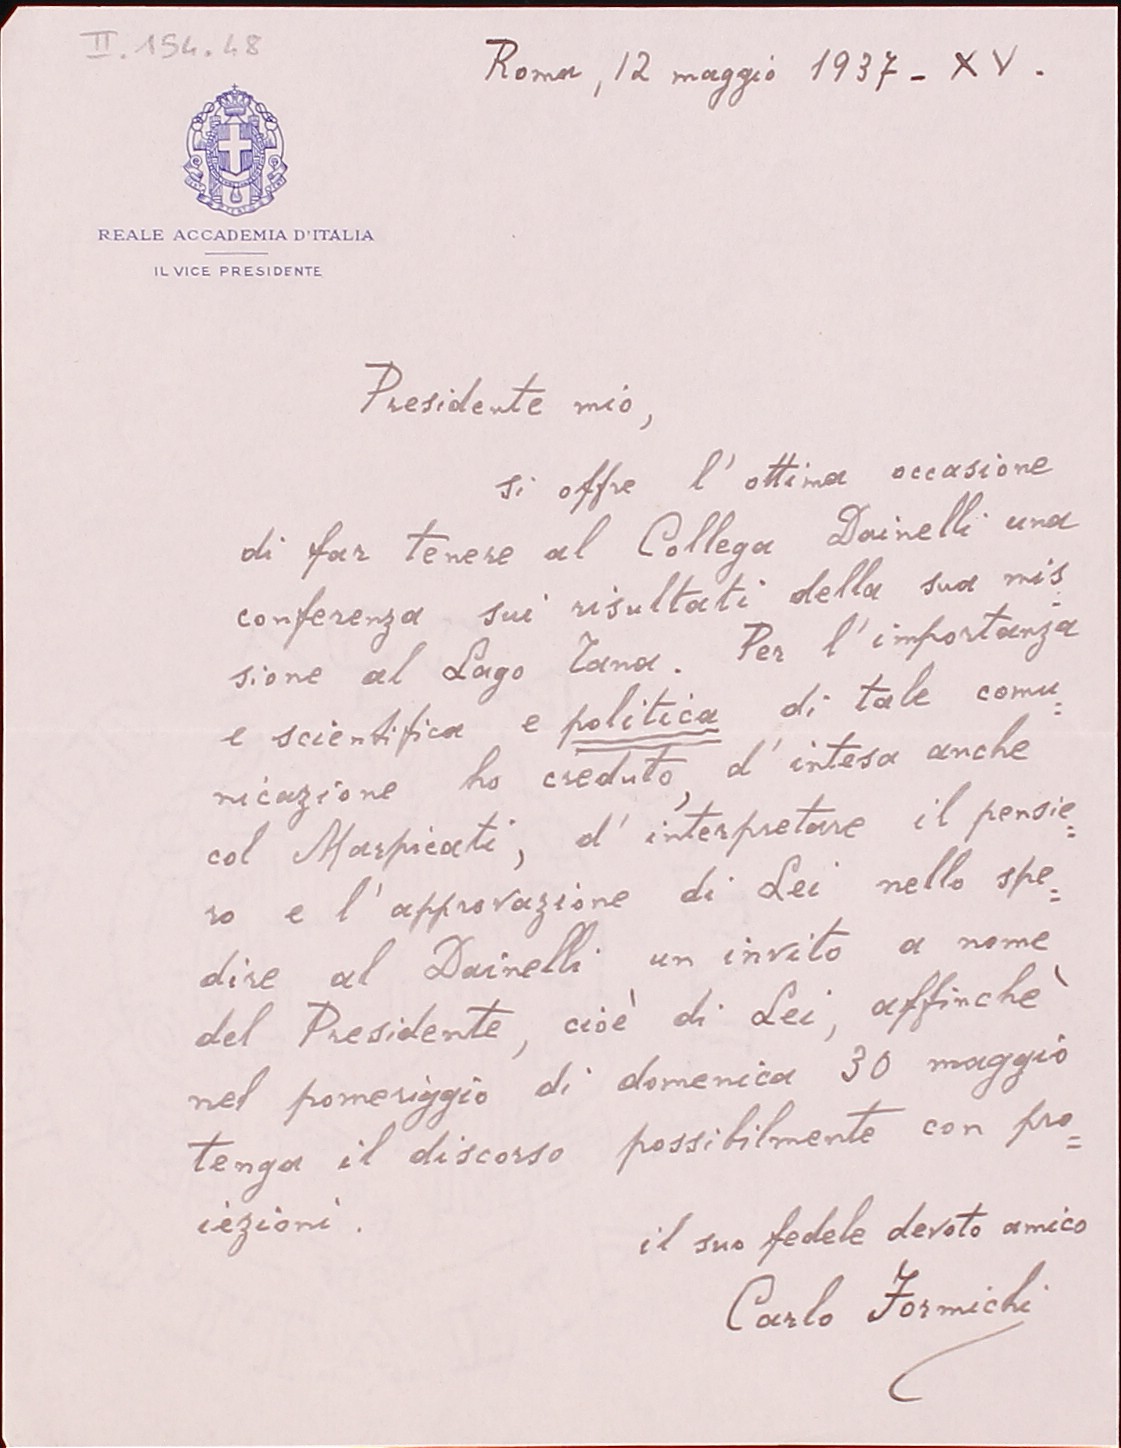 II.154.48
Roma, 12 maggio 1937 - XV.
REALE ACCADEMIA D'ITALIA
IL VICE PRESIDENTE
Presidente mio,
si offre l'ottima occasione
di far tenere al Collega Dainelli una
conferenza sui risultati della sua mis=
sione al Lago Tana. Per l'importanza
e scientifica e politica di tale comu=
nicazione ho creduto, d'intesa anche
col Marpicati, d'interpretare il pensie=
ro e l'approvazione di Lei nello spe=
dire al Dainelli un invito a nome
del Presidente, cioè di Lei, affinchè
nel pomeriggio di domenica 30 maggio
tenga il discorso possibilmente con pro=
iezioni.
il suo fedele devoto amico
Carlo Formichi